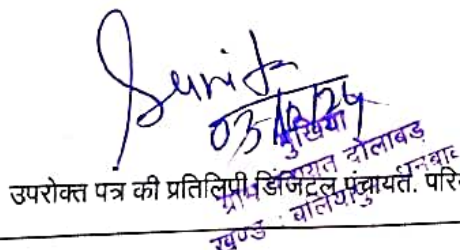 Sunita
03/10/24
मुखिया
ग्राम पंचायत दोलाबड़
प्रखण्ड : बलियापुर धनबाद
उपरोक्त पत्र की प्रतिलिपी डिजिटल पंचायत. परि